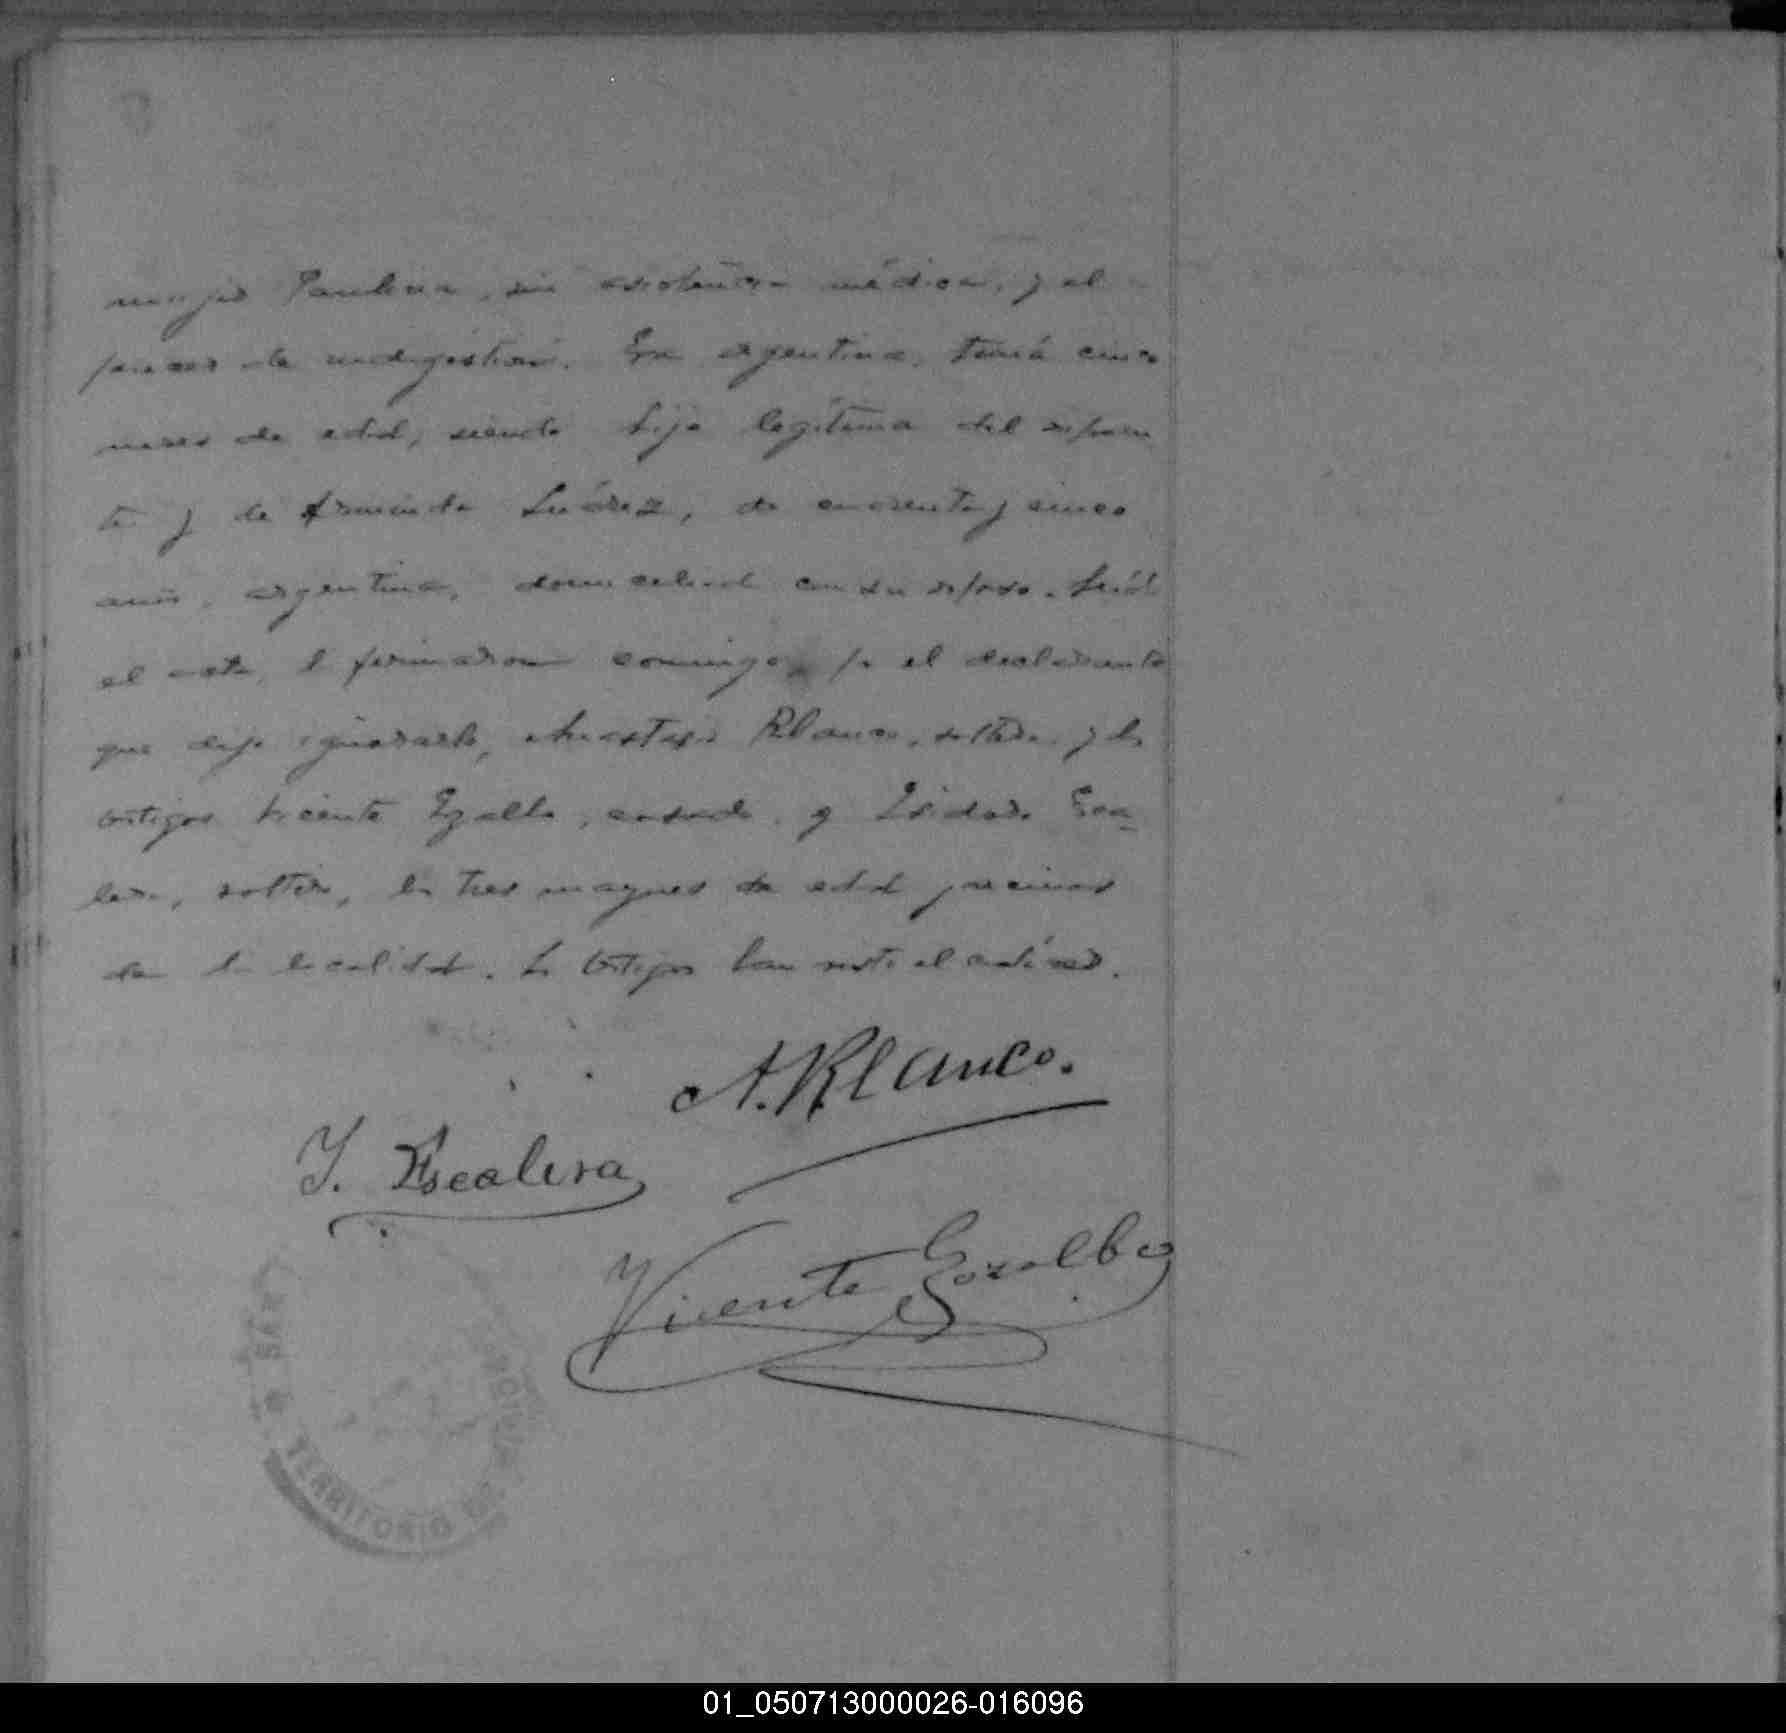 mujer Paulina, sin asistencia médica, y al
parecer de indigestión. Era argentina, tenía cinco
meses de edad, siendo hija legítima del exponen
te y de Arminda Suárez, de cuarenta y cinco
años, argentina, domiciliada con su esposo. Leída
el acta, la firmaron conmigo, por el declarante
que dijo ignorarlo, Anastasio Blanco, soltero y los
testigos Vicente Gozalbo, casado, y Isidoro Esca-
lera, soltero, los tres mayores de edad y vecinos
de la localidad. Los testigos han visto el cadáver.
A. Blanco.
Y. Escalera
Vicente Gozalbo
SAN
TERRITORIO DE
01_050713000026-016096